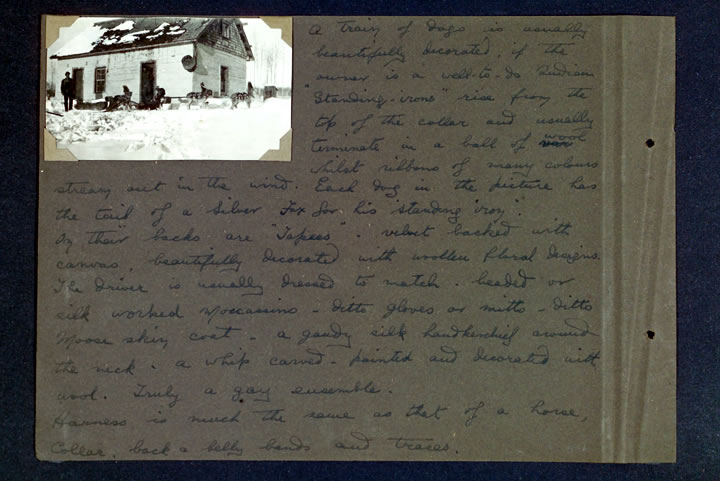 A train of dogs is usually
beautifully decorated, if the
owner is a well-to-do Indian
"Standing-irons" rise from the
top of the collar and usually
terminate in a ball of wool
whilst ribbons of many colours
stream out in the wind. Each dog in the picture has
the tail of a Silver Fox for his "standing iron".
On their backs are "Tapees". velvet backed with
canvas, beautifully decorated with woollen floral designs.
The driver is usually dressed to match. beaded or
silk worked moccasins - ditto gloves or mitts - ditto
Moose skin coat - a gaudy silk handkerchief around
the neck. a whip carved - painted and decorated with
wool. Truly a gay ensemble.
Harness is much the same as that of a horse,
Collar, back & belly bands and traces.